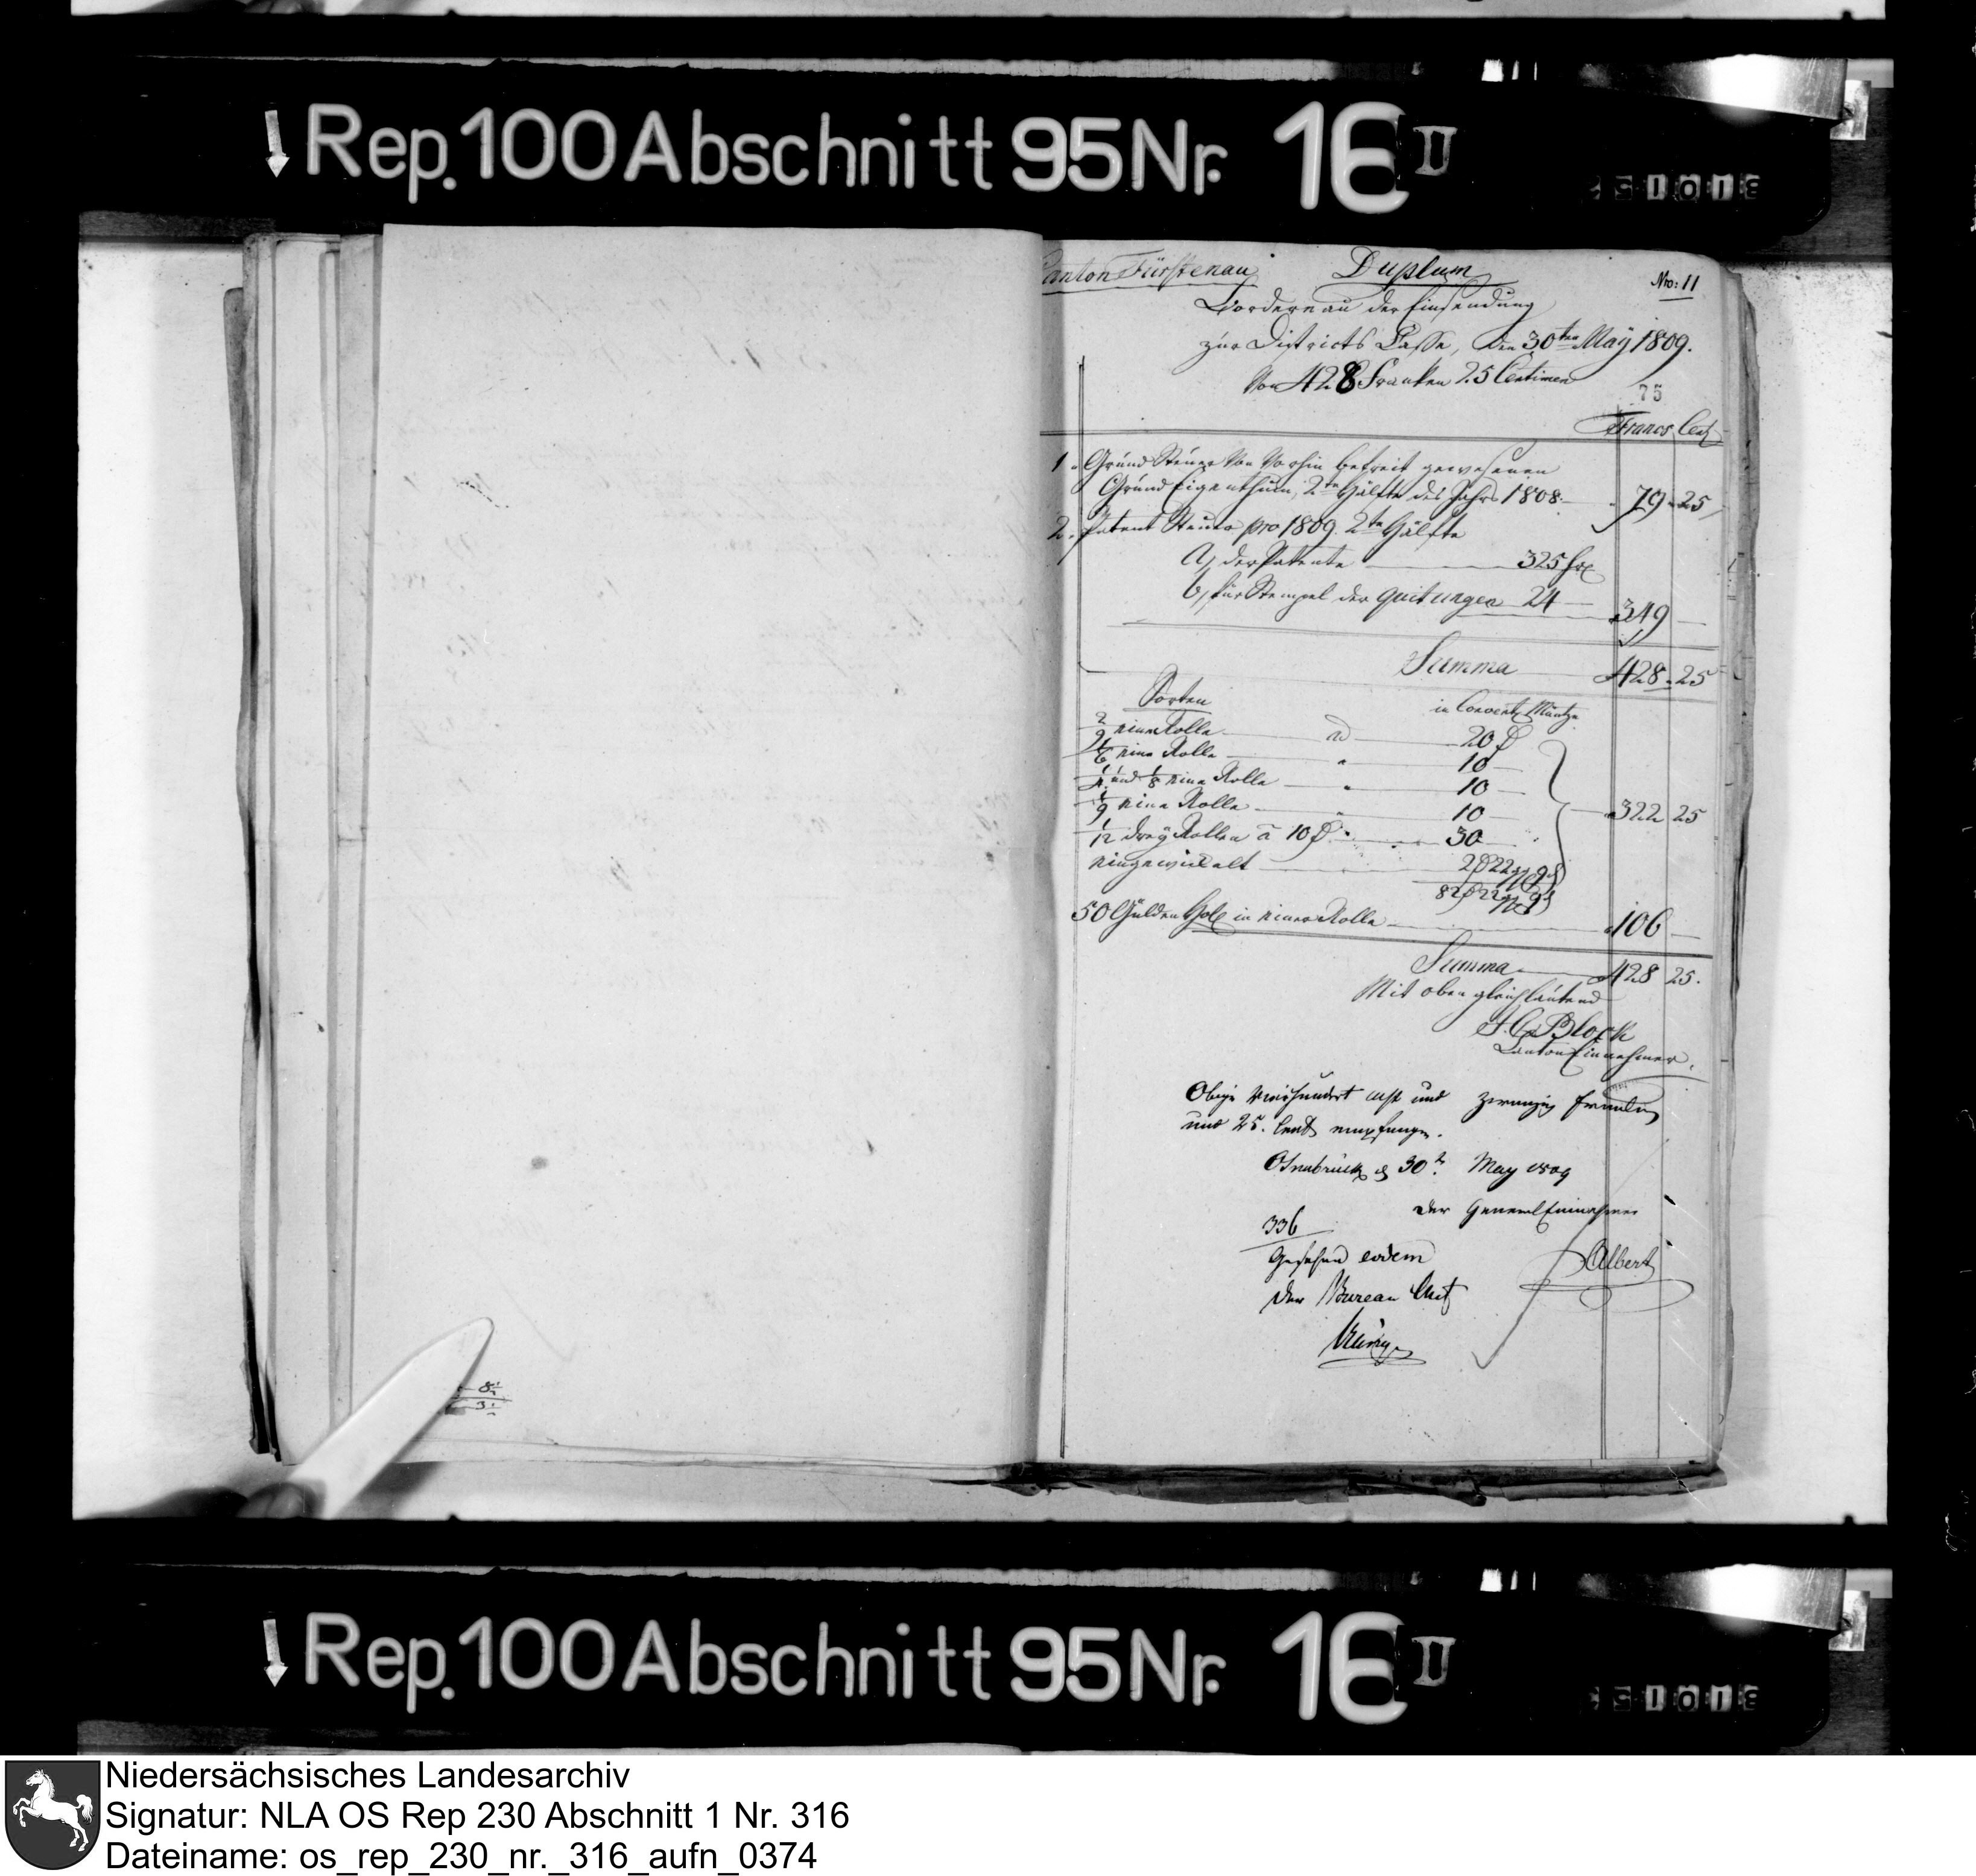 Rep. 100 Abschnitt 95 Nr. 16 II
Canton Fürstenau
Duplum
Nro: 11
Bordereau der Einsendung
zur Districts Casse, den 30ten May 1809.
Von 428 Franken 25 Centimen
75
Francs Cent
1. Grund Steuer von vorhin befreit gewesenen
Grund Eigenthum, 2te Hälfte des Jahrs 1808. 79 25
2. Patent Steuer pro 1809. 2te Hälfte
a, der Patente 325 fr
b, für Stempel der quitungen 24 349
Summa 428 25
Sorten in Convent Müntze
2/3 eine Rolle ad 20
1/6 eine Rolle " 10
und 1/8 eine Rolle " 10
eine Rolle " 10 322 25
1/12 drey Rollen a 10 30
eingewickelt 2 22
82 22
50 Gulden Holl in einer Rolle 106
Summa 428 25.
Mit oben gleichlautend
Block
Canton Einnehmer.
Obige vierhundert acht und zwanzig Franken
und 25. Cent empfangen.
Osnabrück d 30t May 1809
der General Einnehmer
Albert
336
Gesehen eodem
Der Bureau Chef
8
3
Rep. 100 Abschnitt 95 Nr. 16 II
Niedersächsisches Landesarchiv
Signatur: NLA OS Rep 230 Abschnitt 1 Nr. 316
Dateiname: os_rep_230_nr._316_aufn_0374